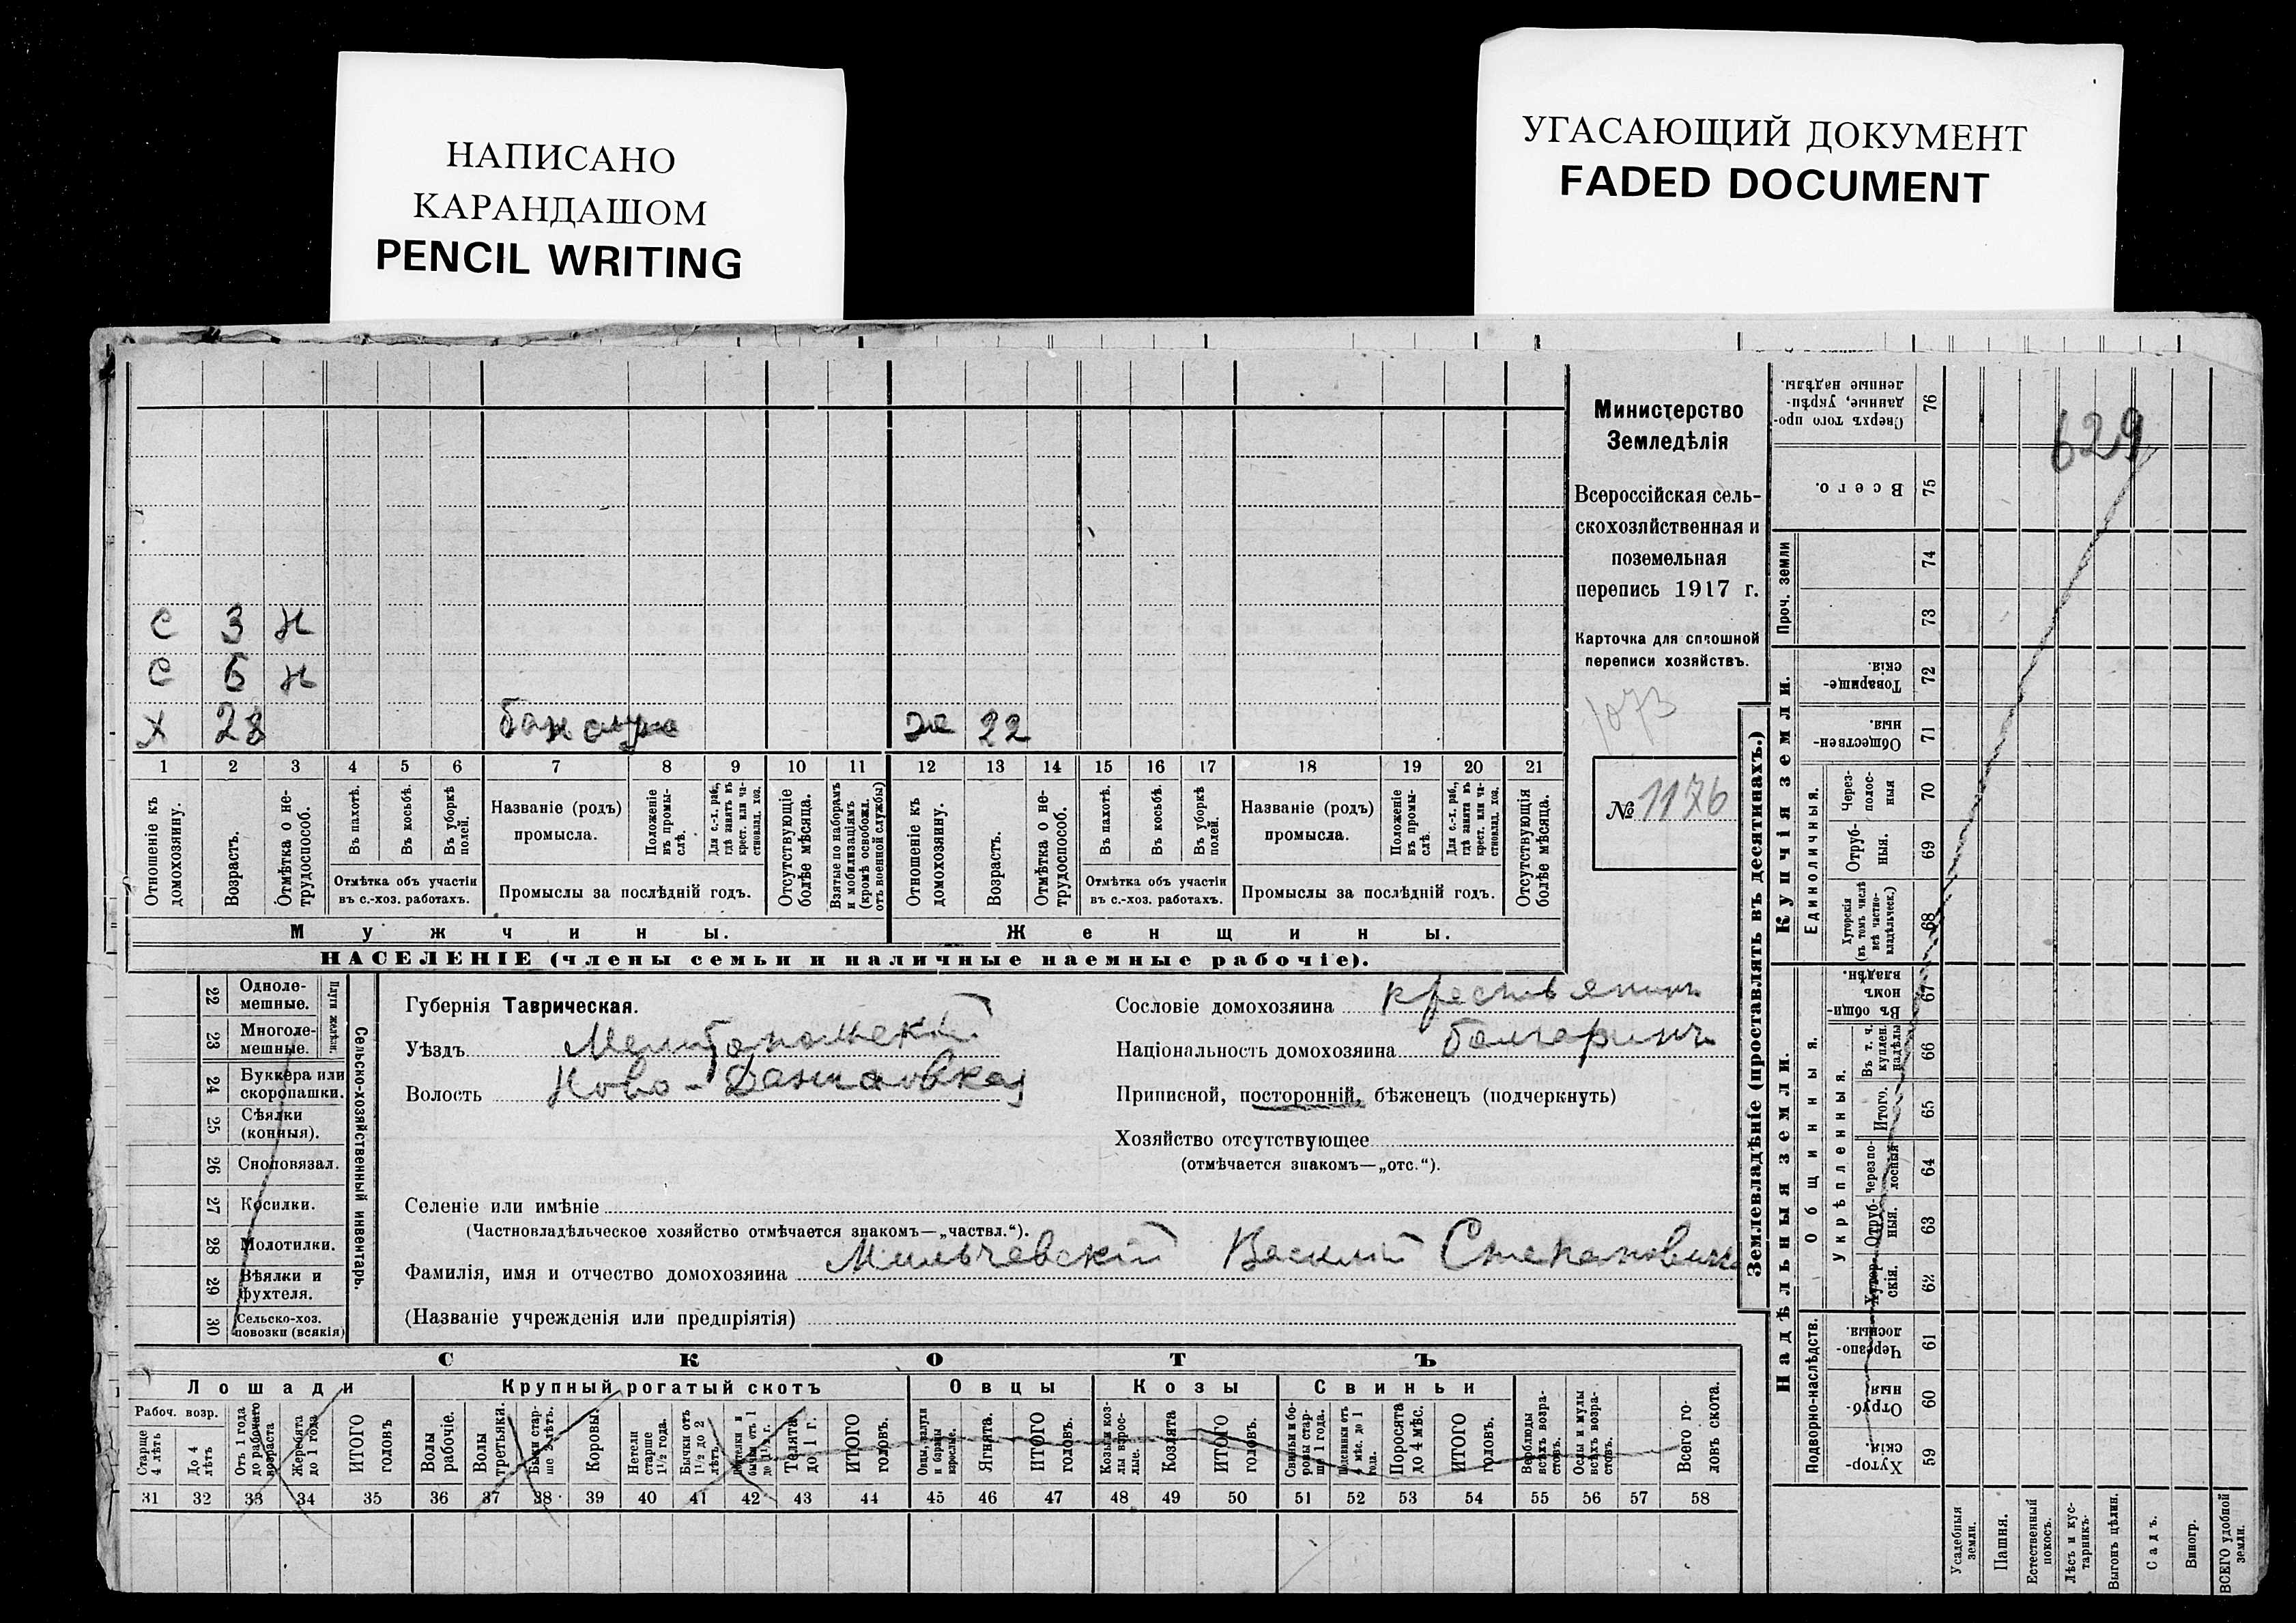 НАПИСАНО
КАРАНДАШОМ
PENCIL WRITING
УГАСАЮЩИЙ ДОКУМЕНТ
FADED DOCUMENT
Министерство
Земледѣлія
Всероссійская сель-
скохозяйственная и
поземельная
перепись 1917 г.
Карточка для сплошной
переписи хозяйствъ.
1073
№ 1176
629
с 3 н
с 5 н
х 28 ж 22
1 2 3 4 5 6 7 8 9 10 11 12 13 14 15 16 17 18 19 20 21
Отношеніе къ домохозяину.
Возрастъ.
Отмѣтка о не-трудоспособ.
Въ пахотѣ.
Въ косьбѣ.
Въ уборкѣ полей.
Отмѣтка объ участіи
въ с.-хоз. работахъ.
Названіе (родъ)
промысла.
Положеніе въ промы-слѣ.
Для с.-х. раб., гдѣ занятъ въ крест. или ча-стновлад. хоз.
Промыслы за послѣдній годъ.
Отсутствующіе болѣе мѣсяца.
Взятые по наборамъ и мобилизаціямъ (кромѣ освобожд. отъ военной службы)
Отношеніе къ домохозяину.
Возрастъ.
Отмѣтка о не-трудоспособ.
Въ пахотѣ.
Въ косьбѣ.
Въ уборкѣ полей.
Отмѣтка объ участіи
въ с.-хоз. работахъ.
Названіе (родъ)
промысла.
Положеніе въ промы-слѣ.
Для с.-х. раб., гдѣ занята въ крест. или ча-стновлад. хоз.
Промыслы за послѣдній годъ.
Отсутствующія болѣе мѣсяца.
Мужчины. Женщины.
НАСЕЛЕНІЕ (члены семьи и наличные наемные рабочіе).
22 Одноле-мешные.
23 Многоле-мешные.
Плуги желѣзн.
24 Буккера или скоропашки.
25 Сѣялки (конныя).
26 Сноповязал.
27 Косилки.
28 Молотилки.
29 Вѣялки и фухтеля.
30 Сельско-хоз. повозки (всякія)
Сельско-хозяйственный инвентарь.
Губернія Таврическая.
Уѣздъ Мелитопольскій
Волость Ново-Даниловкая
Сословіе домохозяина крестьянинъ
Національность домохозяина болгаринъ
Приписной, посторонній, бѣженецъ (подчеркнуть)
Хозяйство отсутствующее
(отмѣчается знакомъ—„отс.“).
Селеніе или имѣніе
(Частновладѣльческое хозяйство отмѣчается знакомъ—„частвл.“).
Фамилія, имя и отчество домохозяина Мильчевскій Василій Степановичъ
(Названіе учрежденія или предпріятія)
СКОТЪ
Лошади Крупный рогатый скотъ Овцы Козы Свиньи
Рабоч. возр.
Старше 4 лѣтъ
До 4 лѣтъ
Отъ 1 года до рабочаго возраста
Жеребята до 1 года
ИТОГО головъ
Волы рабочіе.
Волы третьяки.
Быки стар-ше 2 лѣтъ.
Коровы.
Нетели старше 1½ года.
Бычки отъ 1½ до 2 лѣтъ.
Телки и бычки отъ 1 до 1½ г.
Телята до 1 г.
ИТОГО головъ.
Овцы, валухи и бараны взрослые.
Ягнята.
ИТОГО головъ.
Козы и коз-лы взрос-лые.
Козлята
ИТОГО головъ.
Свиньи и бо-ровы стар-ше 1 года.
Подсвинки отъ 4 мѣс. до 1 года.
Поросята до 4 мѣс.
ИТОГО головъ.
Верблюды всѣхъ возра-стовъ.
Ослы и мулы всѣхъ возра-стовъ.
Всего го-ловъ скота.
31 32 33 34 35 36 37 38 39 40 41 42 43 44 45 46 47 48 49 50 51 52 53 54 55 56 57 58
Землевладѣніе (проставлять въ десятинахъ.)
Сверхъ того про-данные, укрѣп-ленные надѣлы. 76
Всего. 75
Проч. земли 74 73
Купчія земли.
Товарище-скія. 72
Обществен-ныя. 71
Единоличныя.
Через-полос-ныя 70
Отруб-ныя. 69
Хуторскія (въ томъ числѣ всѣ частно-владѣльческ.) 68
Надѣльныя земли.
Общинныя.
Въ общи-номъ владѣн. 67
Укрѣпленныя.
Въ т. ч. куплен. надѣлы 66
Итого. 65
Черезпо-лосныя 64
Отруб-ныя. 63
Хутор-скія. 62
Подворно-наслѣдств.
Черезпо-лосныя. 61
Отруб-ныя 60
Хутор-скія. 59
Усадебныя земли.
Пашня.
Естественный покосъ.
Лѣсъ и кус-тарникъ.
Выгонъ цѣлин.
Садъ.
Виногр.
ВСЕГО удобной земли.